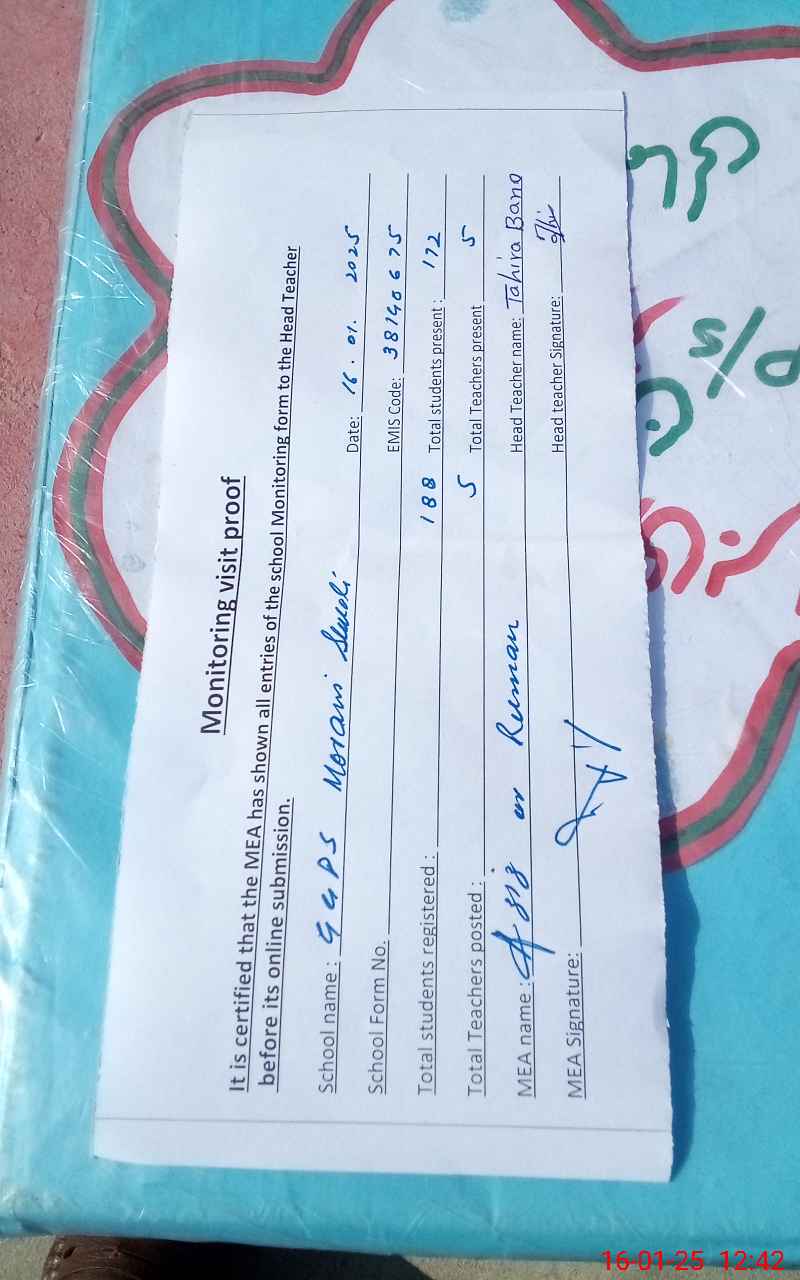 Monitoring visit proof
It is certified that the MEA has shown all entries of the school Monitoring form to the Head Teacher
before its online submission.
School name : GGPS Morani Date: 16 . 01 . 2025
School Form No. EMIS Code: 38140675
Total students registered : 188 Total students present : 172
Total Teachers posted : 5 Total Teachers present 5
MEA name : Aziz ur Reman Head Teacher name: Tahira Bano
MEA Signature: Head teacher Signature:
16-01-25 12:42